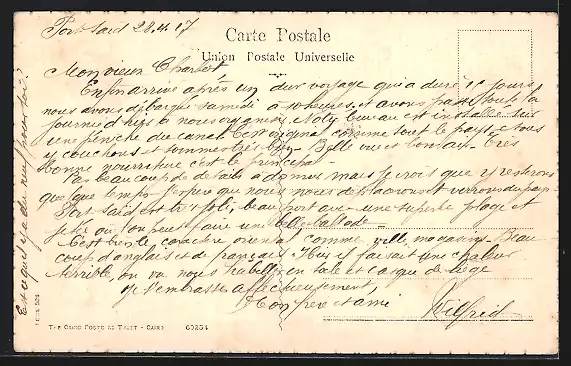 Port Saïd 28.4.17
Carte Postale
Union Postale Universelle
Mon vieux Charlot,
Enfin arrivé après un dur voyage qui a duré 10 jours
nous avons débarqué samedi à 10 heures et avons passé toute la
journée d'hier à nous organiser. Notre bureau est installé sur
une péniche du canal. C'est original comme tout le pays. Nous
y couchons et sommes très bien. Belle vue et bon air. Très
bonne nourriture c'est le principal.
Pas beaucoup de détails à donner mais je crois que j'y resterai
quelque temps. J'espère que nous nous déplacerons et verrons du pays
Port Saïd est très joli, beau port avec une superbe plage et
jetée où l'on peut faire une belle ballade =
C'est bien le caractère oriental comme ville, magasins. Beau-
coup d'anglais et de français. Hier il faisait une chaleur
terrible, on va nous habiller en toile et casque de liège
Je t'embrasse affectueusement,
Ton frère et ami
Wilfrid
Est ce qu'il y a du neuf pour toi?
The Cairo Postcard Trust - Cairo
60254